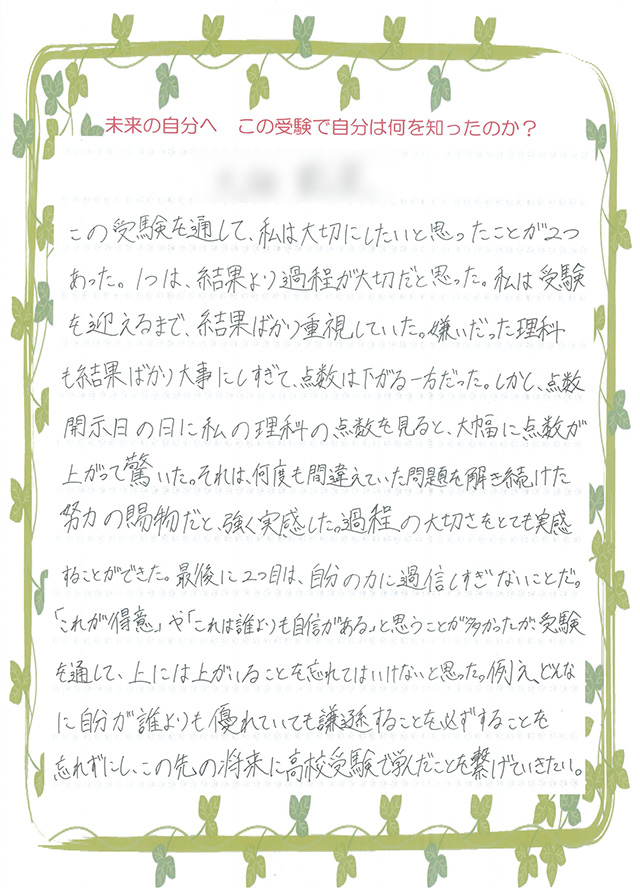 未来の自分へ　この受験で自分は何を知ったのか？
この受験を通して、私は大切にしたいと思ったことが2つ
あった。1つは、結果より過程が大切だと思った。私は受験
を迎えるまで、結果ばかり重視していた。嫌いだった理科
も結果ばかり大事にしすぎて、点数は下がる一方だった。しかし、点数
開示日の日に私の理科の点数を見ると、大幅に点数が
上がって驚いた。それは、何度も間違えていた問題を解き続けた
努力の賜物だと、強く実感した。過程の大切さをとても実感
することができた。最後に2つ目は、自分の力に過信しすぎないことだ。
「これが得意」や「これは誰よりも自信がある。」と思うことが多かったが、受験
を通して、上には上がいることを忘れてはいけないと思った。例え、どんな
に自分が誰よりも優れていても謙遜することを必ずすることを
忘れずにし、この先の将来に高校受験で学んだことを繋げていきたい。